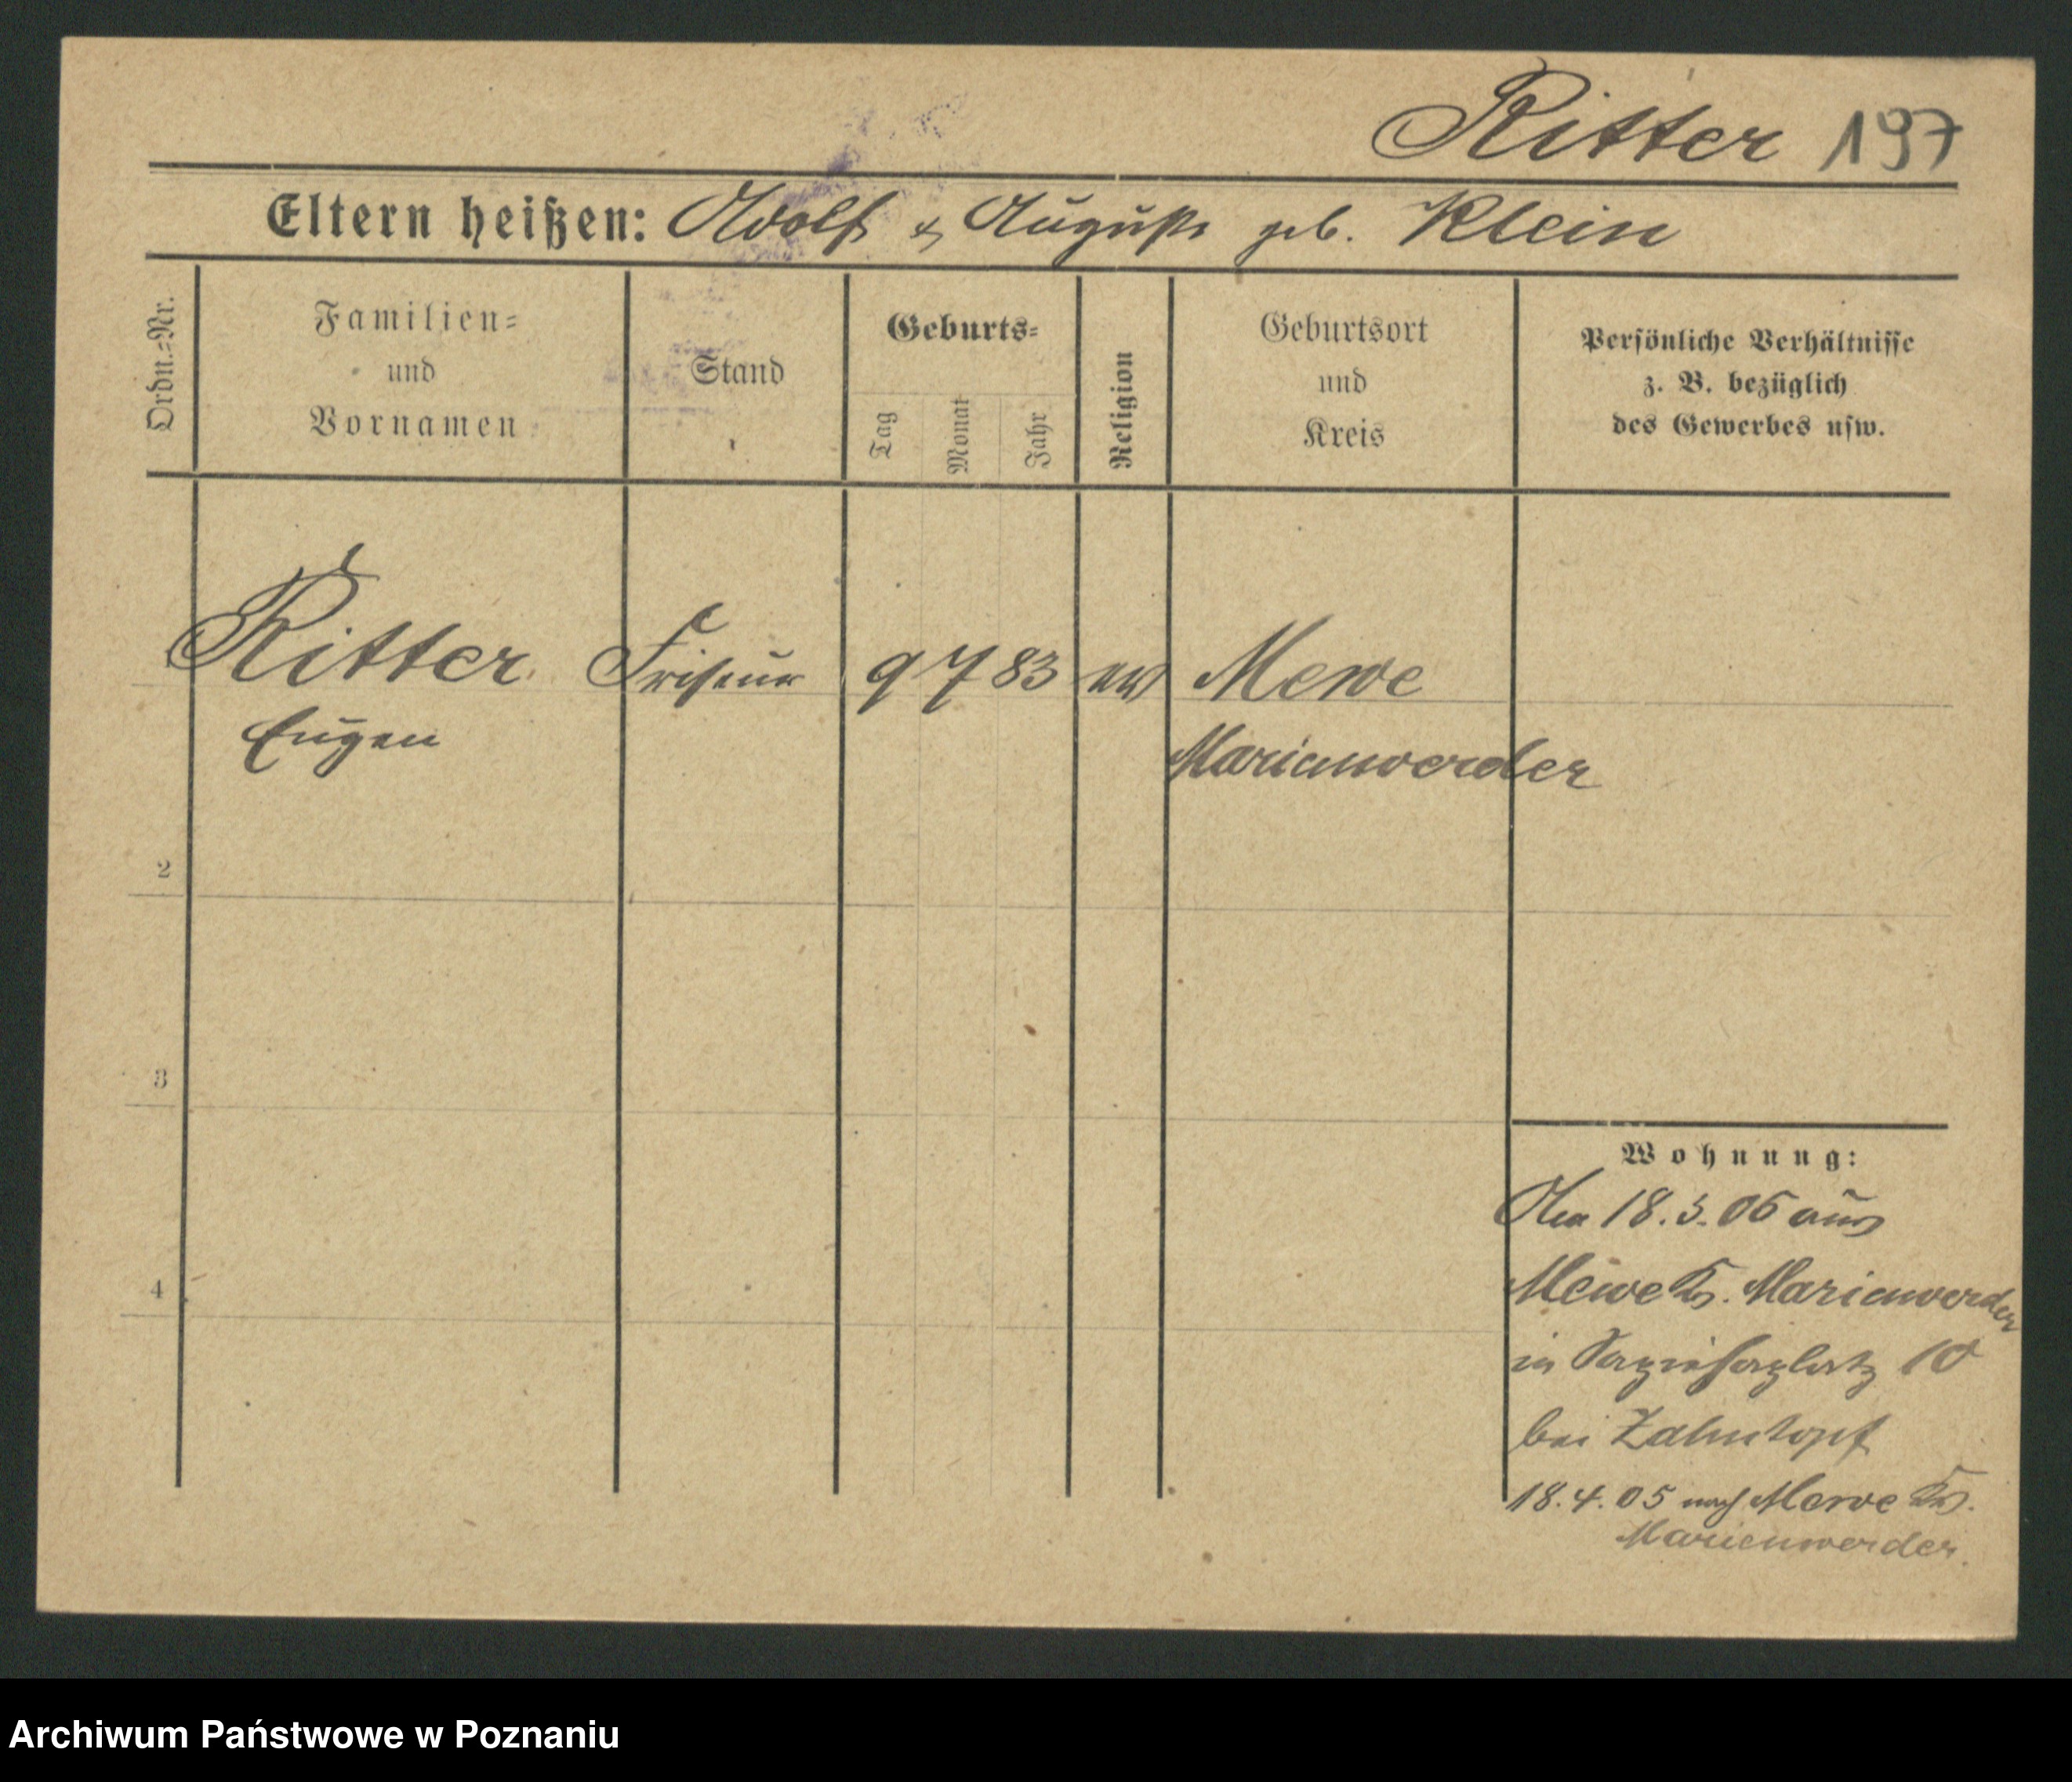 Ritter 197
Eltern heißen: Adolf & Auguste geb. Klein
Ordn.=Nr.
Familien=
und
Vornamen
Stand
Geburts=
Tag
Monat
Jahr
Religion
Geburtsort
und
Kreis
Persönliche Verhältnisse
z. B. bezüglich
des Gewerbes usw.
Ritter Friseur 9 7 83 ev Mewe
Eugen Marienwerder
2
3
4
Wohnung:
18.3.05 aus
Mewe Kr. Marienwerder
in Sapiehaplatz 10
bei Zahntopf
18.4.05 nach Mewe Kr.
Marienwerder.
Archiwum Państwowe w Poznaniu